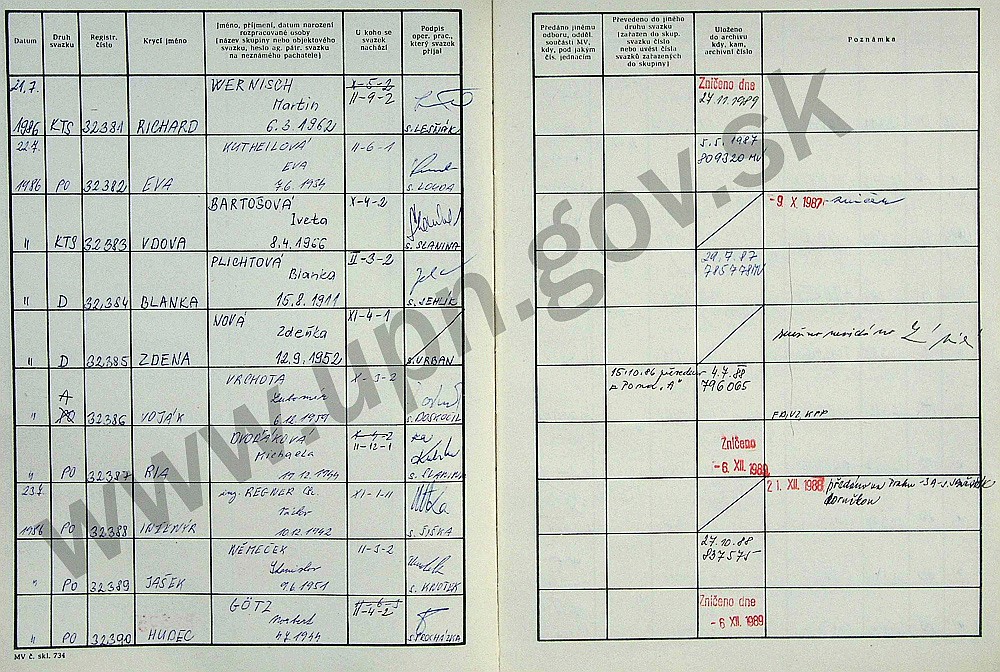 Datum
Druh
svazku
Registr.
číslo
Krycí jméno
Jméno, příjmení, datum narození
rozpracované osoby
(název skupiny nebo objektového
svazku, heslo ag. pátr. svazku
na neznámého pachatele)
U koho se
svazek
nachází
Podpis
oper. prac.,
který svazek
přijal
Předáno jinému
odboru, odděl.
součásti MV,
kdy, pod jakým
čís. jednacím
Převedeno do jiného
druhu svazku
(zařazen do skup.
svazku číslo
nebo uvést čísla
svazků zařazených
do skupiny)
Uloženo
do archivu
kdy, kam,
archivní číslo
Poznámka
21.7.
1986 KTS 32381 RICHARD
WERNISCH
Martin
6.3.1962
X-5-2
II-9-2
s. LESŇÁK
Zničeno dne
27.11.1989
22.7.
1986 PO 32382 EVA
KUTHEILOVÁ
EVA
7.6.1934
II-6-1
s. LOUDA
5.5.1987
809320 MV
" KTS 32383 VDOVA
BARTOŠOVÁ
Iveta
8.4.1966
X-4-2
s. SLANINA
-9. X. 1987
" D 32384 BLANKA
PLICHTOVÁ
Blanka
15.8.1911
II-3-2
s. JEHLÍK
29.7.87
785778MV
" D 32385 ZDENA
NOVÁ
Zdeňka
12.9.1952
XI-4-1
s. URBAN
A
" PO 32386 VOJÁK
VRCHOTA
Lubomír
6.12.1959
X-3-2
s. DOSKOČIL
15.10.86
"A"
4.7.88
796065
" PO 32387 RIA
DVOŘÁKOVÁ
Michaela
19.12.1944
X-4-2
II-12-1
s. SLANINA
Zničeno
-6. XII. 1989
23.7.
1986 PO 32388 INŽENÝR
ing. REGNER CSc
Václav
10.12.1942
XI-1-11
s. ŠIŠKA
21. XII. 1988 předáno na Prahu
" PO 32389 JAŠEK
NĚMEČEK
Stanislav
9.6.1951
II-3-2
s. KNOTEK
27.10.88
837575
" PO 32390 HUDEC
GÖTZ
Norbert
4.7.1944
II-4-2
s. PROCHÁZKA
Zničeno dne
-6. XII. 1989
MV č. skl. 734
www.upn.gov.sk